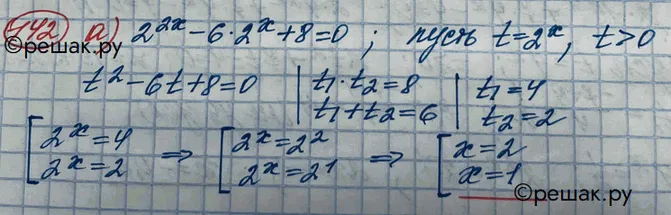 142 а) 2^{2x} - 6·2^x + 8 = 0 ; пусть t = 2^x, t > 0
©решак.ру
t² - 6t + 8 = 0 | t₁·t₂ = 8 | t₁ = 4
t₁ + t₂ = 6 | t₂ = 2
[ 2^x = 4 ⇒ [ 2^x = 2² ⇒ [ x = 2
2^x = 2 2^x = 2¹ x = 1
©решак.ру